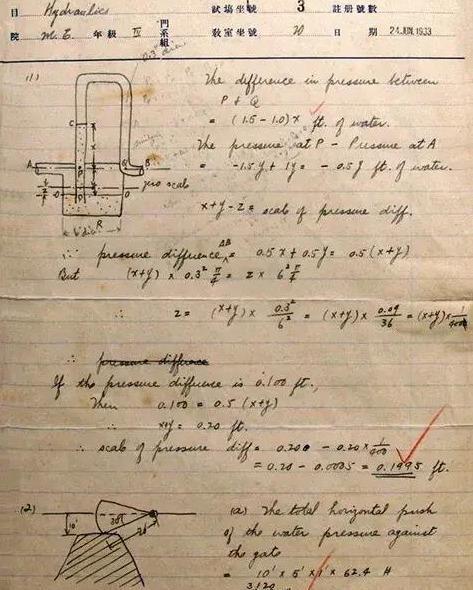 目 Hydraulics 試場坐號 3 註册號數
院 M. E. 年級 IV 門系組 教室坐號 70 日期 24 JUN 1933
0.3" dia.
(1) The difference in pressure between
P & Q
= (1.5 - 1.0) x ft. of water.
The pressure at P - Pressure at A
= -1.5y + 1y = -0.5y ft. of water.
x+y-z = scale of pressure diff.
C
A
B
P
Q
O
O
zero scale
R
6" dia.
∴ pressure difference AB = 0.5x + 0.5y = 0.5 (x+y)
But (x+y) x 0.3² π/4 = z x 6² π/4
∴ z = (x+y) x 0.3²/6² = (x+y) x 0.09/36 = (x+y) x 1/400
∴ pressure difference
If the pressure difference is 0.100 ft.,
Then 0.100 = 0.5 (x+y)
∴ x+y = 0.20 ft.
∴ scale of pressure diff = 0.200 - 0.20 x 1/400
= 0.20 - 0.0005 = 0.1995 ft.
(2) (a) The total horizontal push
of the water pressure against
the gate
= 10' x 5' x 1' x 62.4 #
3120
10'
30°
20'